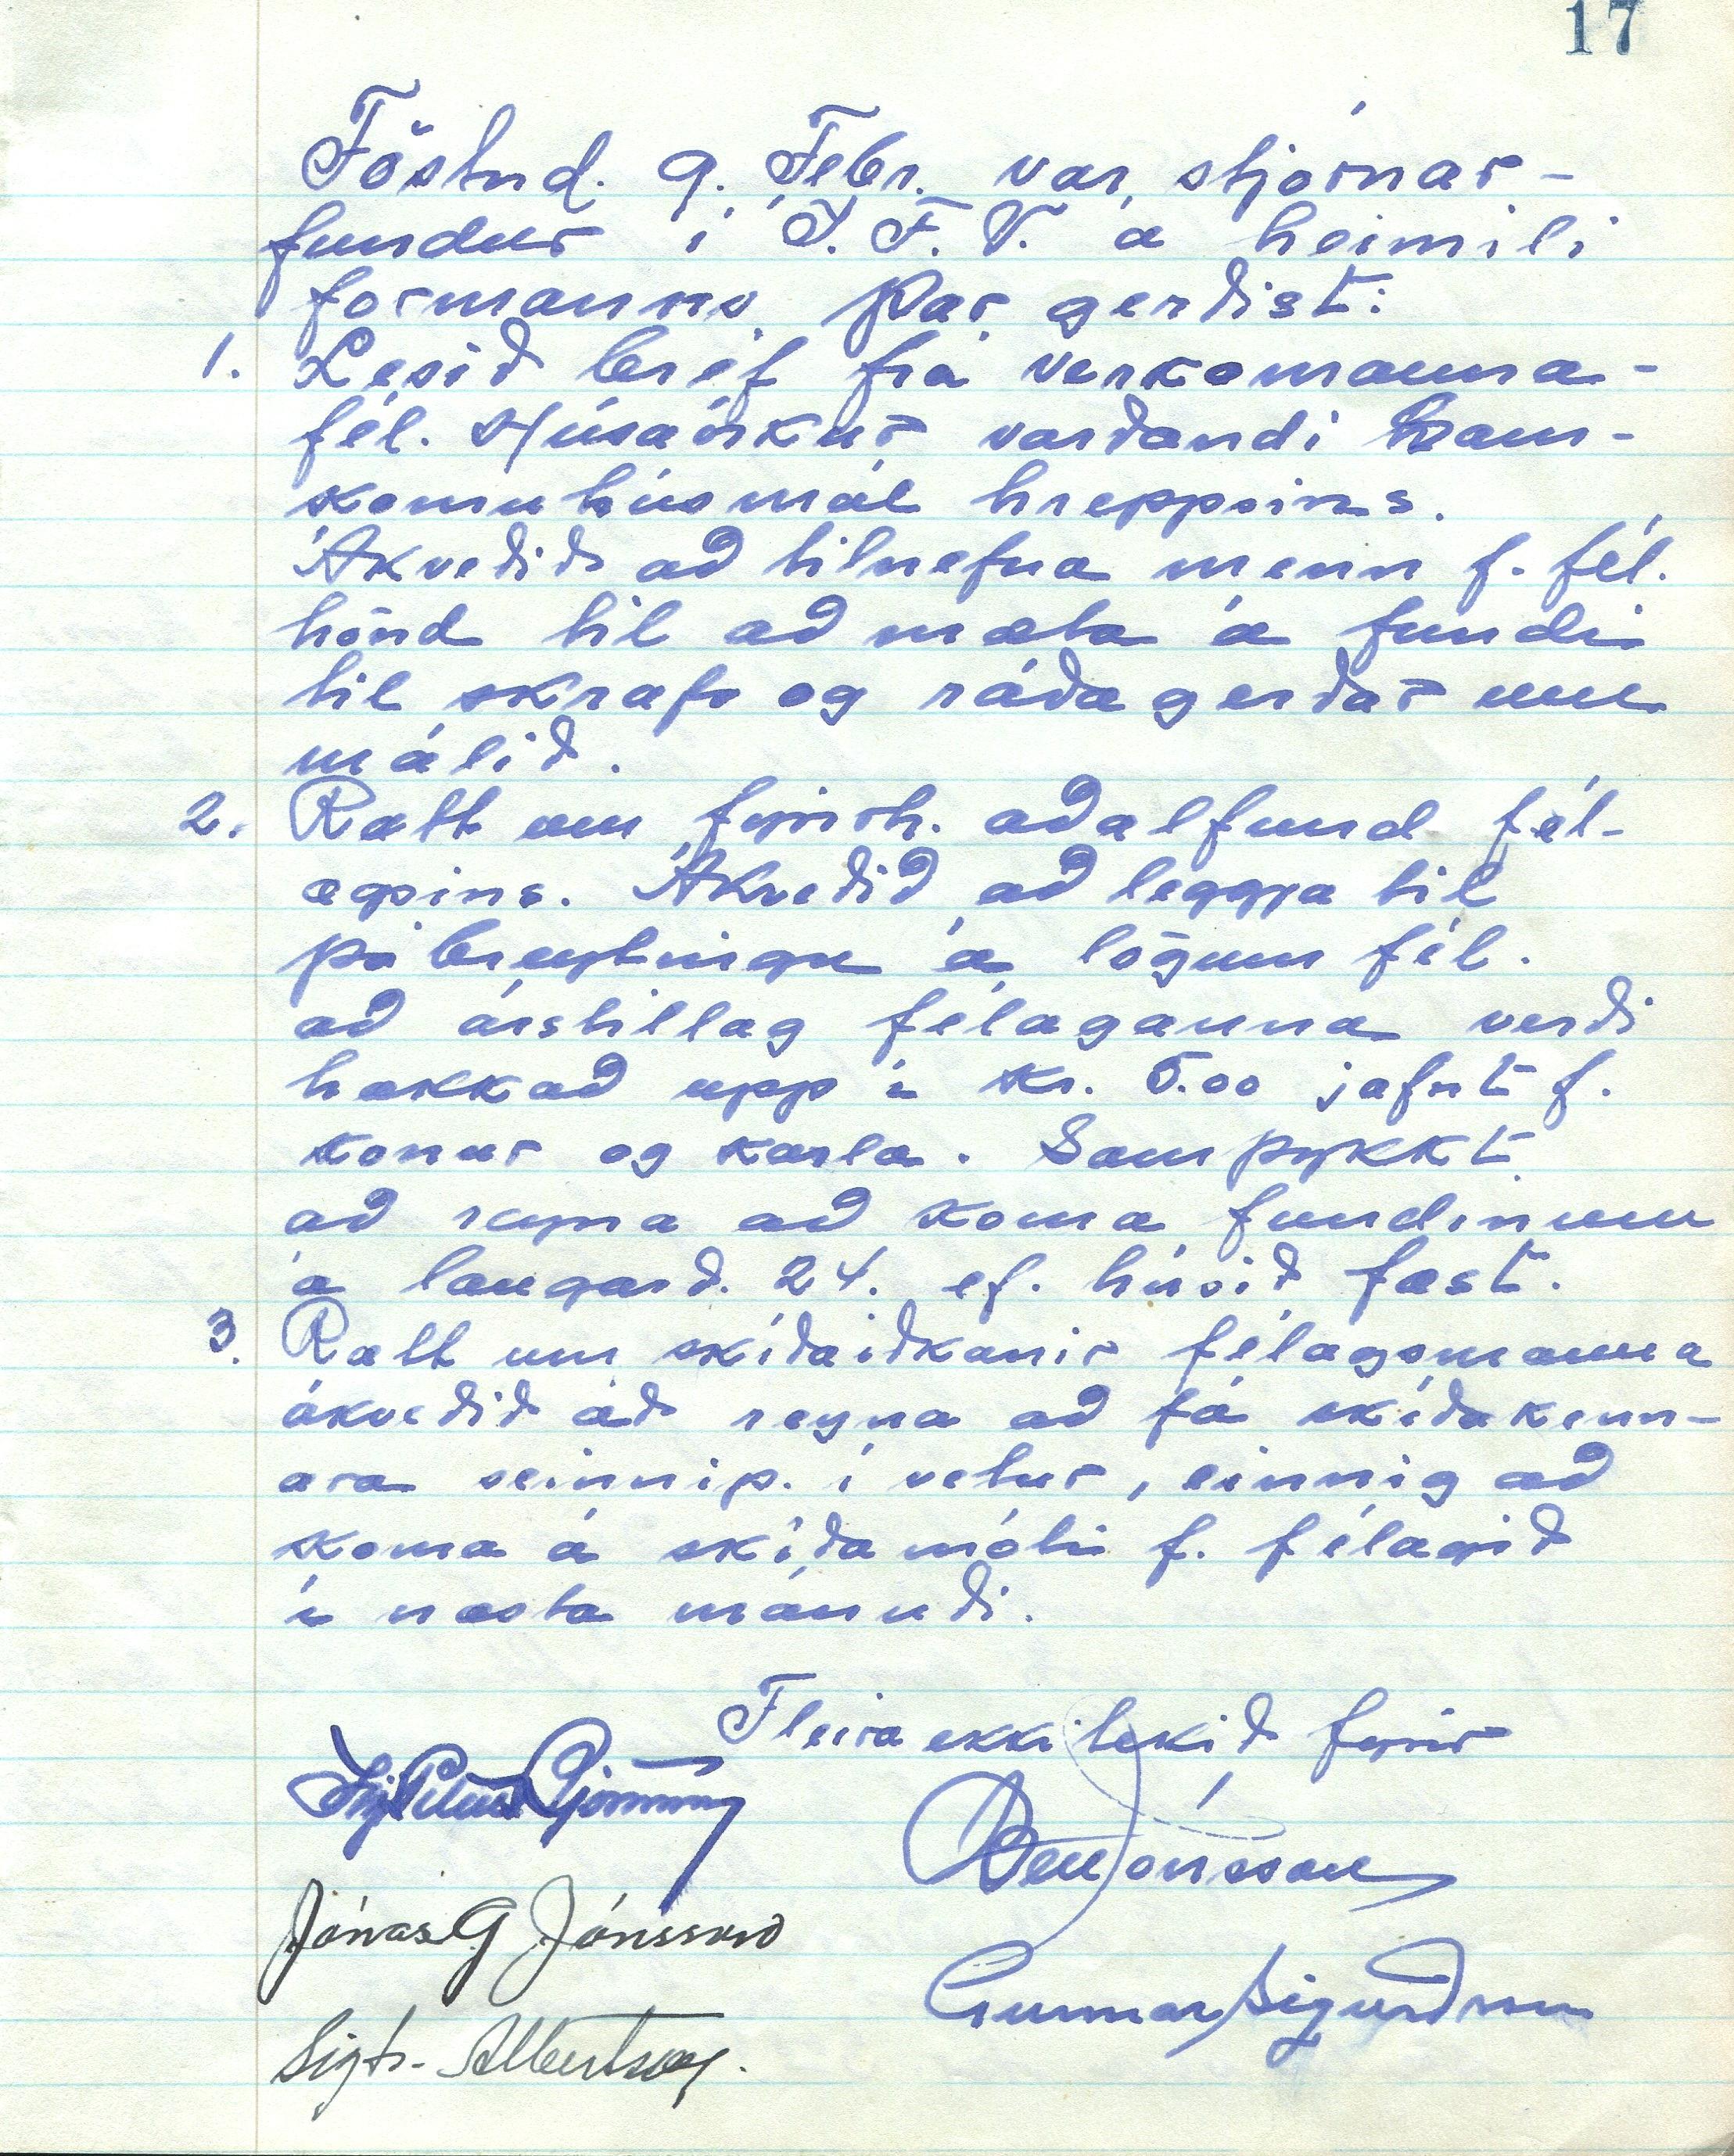 17
Föstud. 9. Febr. var stjórnar-
fundur í Í.F.V. á heimili
formanns. Þar gerðist:
1. Lesið bréf frá verkamanna-
fél. Húsavíkur varðandi sam-
komuhúsmál hreppsins.
Ákveðið að tilnefna menn f. fél.
hönd til að mæta á fundi
til skrafs og ráðagerðar um
málið.
2. Rætt um fyrirh. aðalfund fél-
agsins. Ákveðið að leggja til
þá breytingu á lögum fél.
að árstillag félaganna verði
hækkað upp í kr. 5.00 jafnt f.
konur og karla. Samþykkt
að reyna að koma fundinum
á laugard. 24. ef. húsið fæst.
3. Rætt um skíðaiðkanir félagsmanna
ákveðið að reyna að fá skíðakenn-
ara seinnip. í vetur, einnig að
koma á skíðamóti f. félagið
í næsta mánuði.
Fleira ekki tekið fyrir
Sig Pétur Björnsson
Ben Jónsson
Jónas G Jónsson
Gunnar Sigurðsson
Sigtr. Albertsson.